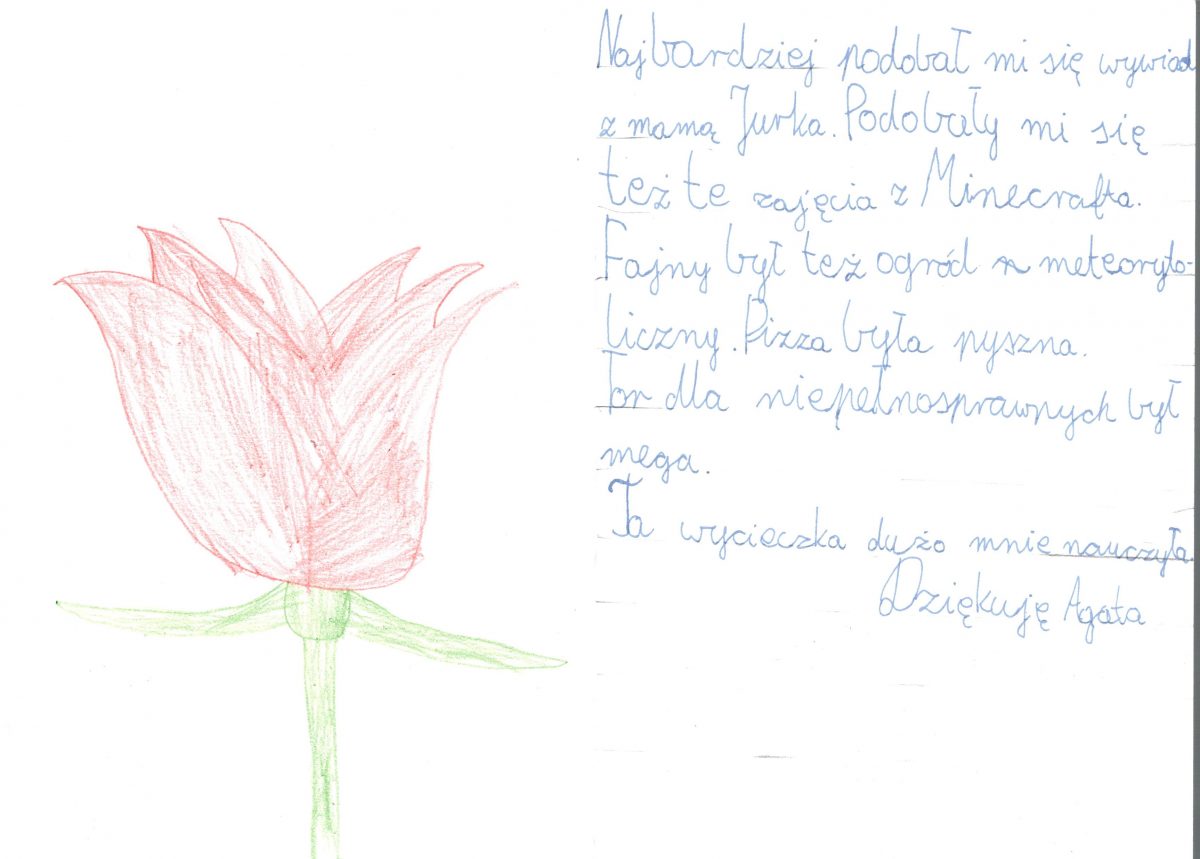 Najbardziej podobał mi się wywiad
z mamą Jurka. Podobały mi się
też te zajęcia z Minecrafta.
Fajny był też ogród meteoryto-
liczny. Pizza była pyszna.
Tor dla niepełnosprawnych był
mega.
Ta wycieczka dużo mnie nauczyła.
Dziękuję Agata